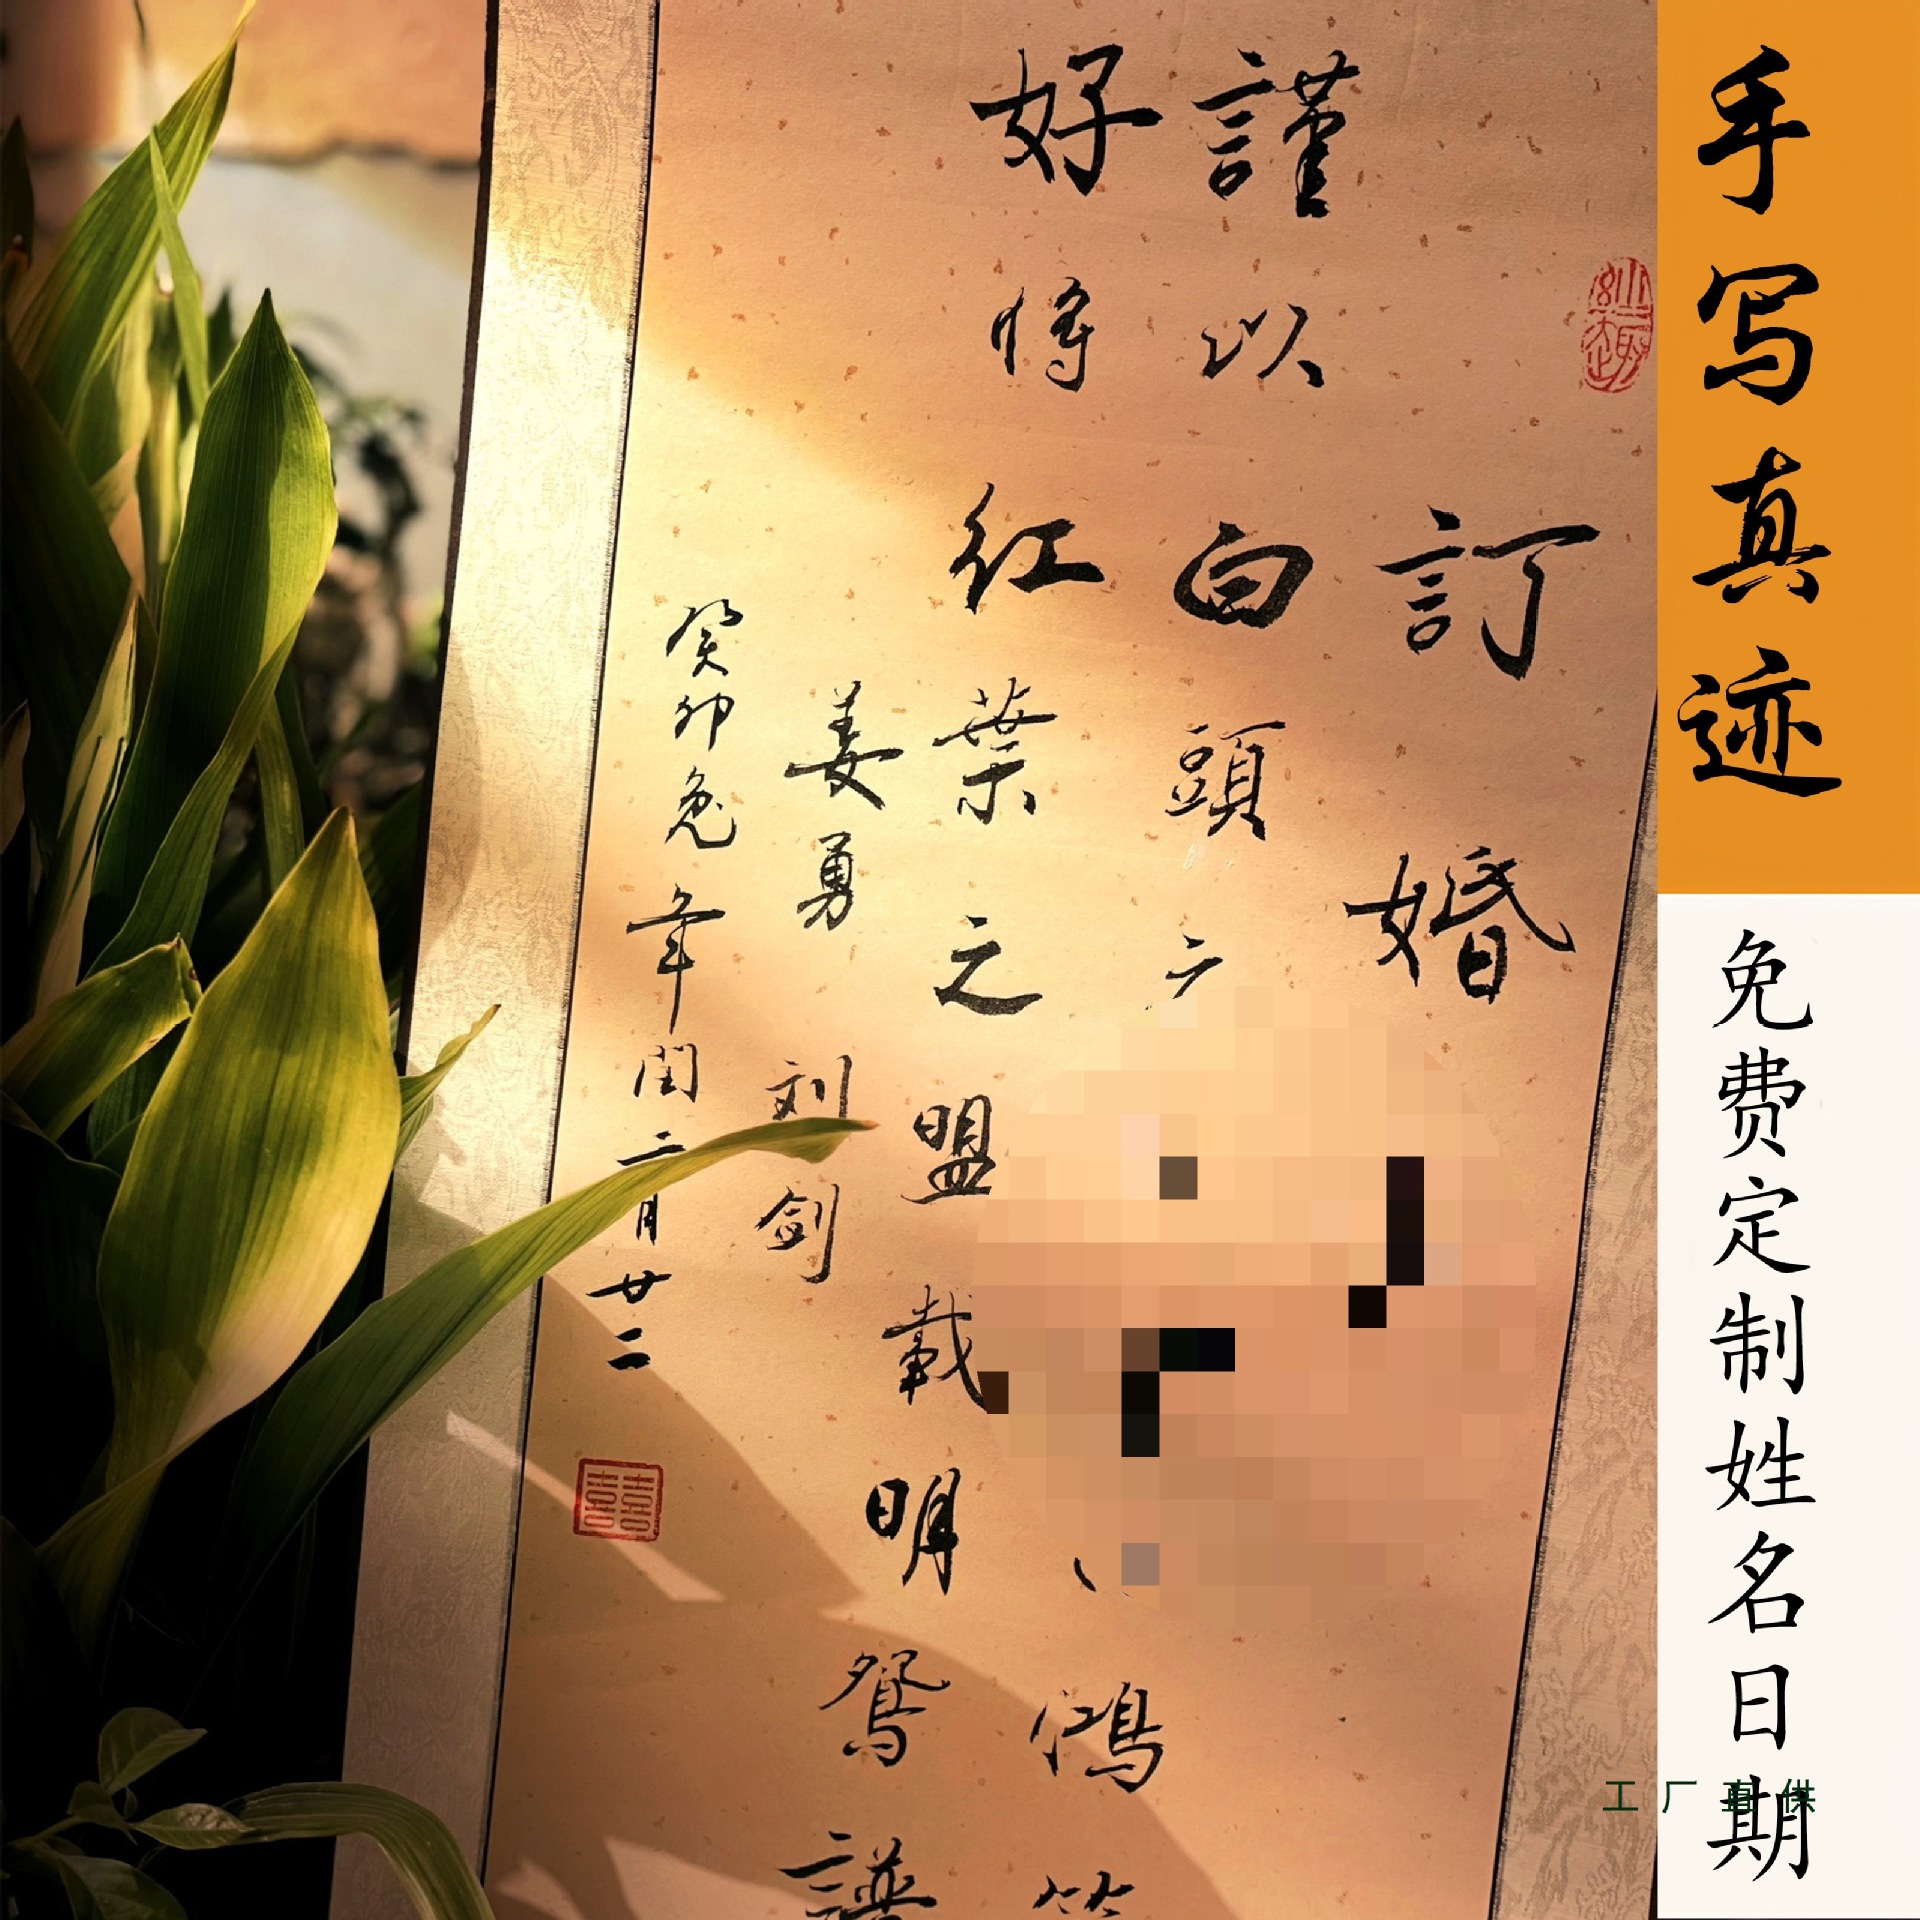 手写真迹
免费定制姓名日期
工厂直供
訂婚
謹以白頭之
鴻
好將紅葉之盟載明鴛譜
姜勇 刘剑
癸卯兔年闰二月廿二
囍